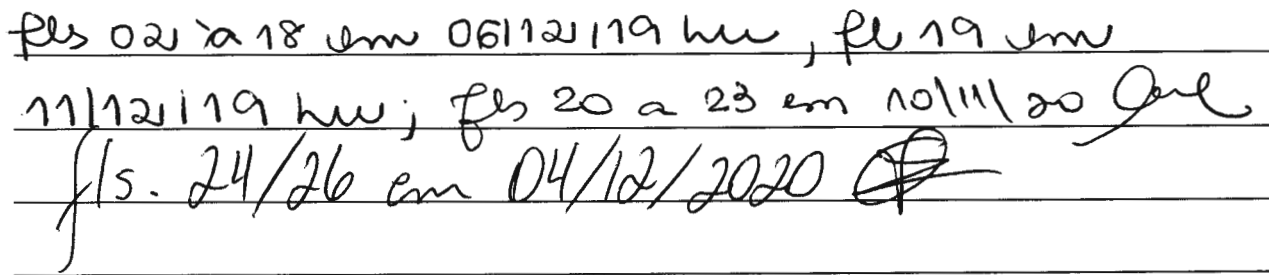 fls 02 à 18 em 06/12/19 hw, fl 19 em
11/12/19 hw; fls 20 a 23 em 10/11/20
fls. 24/26 em 04/12/2020